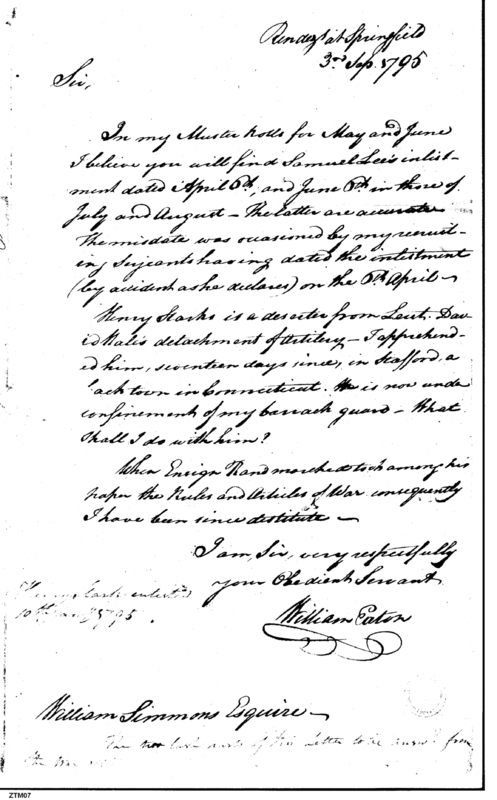 Rendezs at Springfield
3rd Sep. 1795
Sir,
In my Muster Rolls for May and June
I believe you will find Samuel Lee's inlist-
ment dated April 6th, and June 6th in those of
July and August – the latter are accurate
The misdate was occasioned by my recruit-
ing Serjeants having dated the inlistment
(by accident as he declares) on the 6th April –
Henry Starks is a deserter from Leut. Dav
id Hale's detachment of Artilery – I apprehend-
ed him, seventeen days since, in Stafford, a
back town in Connecticut. He is now under
confinement of my barrack guard – What
Shall I do with him?
When Ensign Rand marched took among his
paper the Rules and Articles of War consequently
I have been since destitute –
I am, Sir, very respectfully
your Obedient Servant
William Eaton
Henry Stark enlisted
10th 1795.
William Simmons Esquire –
The two last parts of this Letter to be answd from
the War
ZTM07